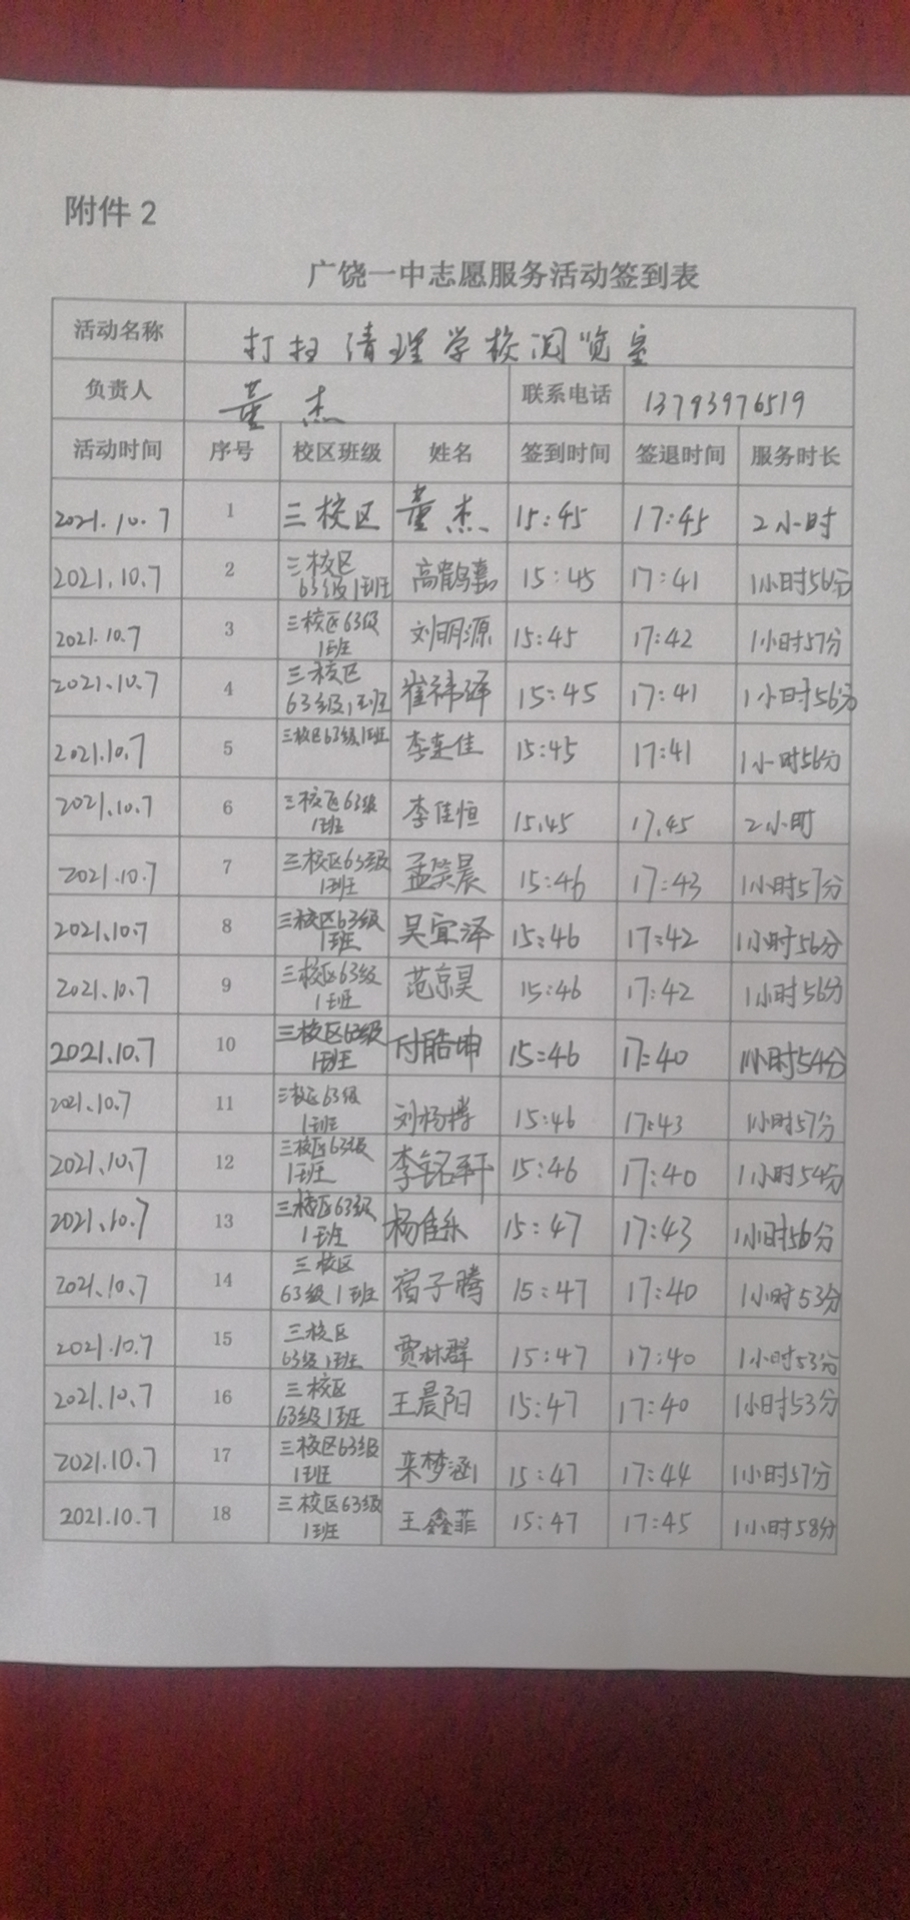 附件 2
广饶一中志愿服务活动签到表
活动名称 打扫清理学校阅览室
负责人 董杰 联系电话 13793976519
活动时间 序号 校区班级 姓名 签到时间 签退时间 服务时长
2021.10.7 1 三校区 董杰 15:45 17:45 2小时
2021.10.7 2 三校区63级1班班 15:45 17:41 1小时56分
2021.10.7 3 三校区63级1班 刘明源 15:45 17:42 1小时57分
2021.10.7 4 三校区63级1班 崔祎泽 15:45 17:41 1小时56分
2021.10.7 5 三校区63级1班 李佳 15:45 17:41 1小时56分
2021.10.7 6 三校区63级1班 李佳恒 15.45 17.45 2小时
2021.10.7 7 三校区63级1班 孟笑晨 15:46 17:43 1小时57分
2021.10.7 8 三校区63级1班 吴宜泽 15:46 17:42 1小时56分
2021.10.7 9 三校区63级1班 范京昊 15:46 17:42 1小时56分
2021.10.7 10 三校区63级1班 付皓坤 15:46 17:40 1小时54分
2021.10.7 11 三校区63级1班 刘杨 15:46 17:43 1小时57分
2021.10.7 12 三校区63级1班 李铭轩 15:46 17:40 1小时54分
2021.10.7 13 三校区63级1班 杨佳乐 15:47 17:43 1小时56分
2021.10.7 14 三校区63级1班 宿子腾 15:47 17:40 1小时53分
2021.10.7 15 三校区63级1班 贾林群 15:47 17:40 1小时53分
2021.10.7 16 三校区63级1班 王晨阳 15:47 17:40 1小时53分
2021.10.7 17 三校区63级1班 栾梦涵 15:47 17:44 1小时57分
2021.10.7 18 三校区63级1班 王鑫菲 15:47 17:45 1小时58分